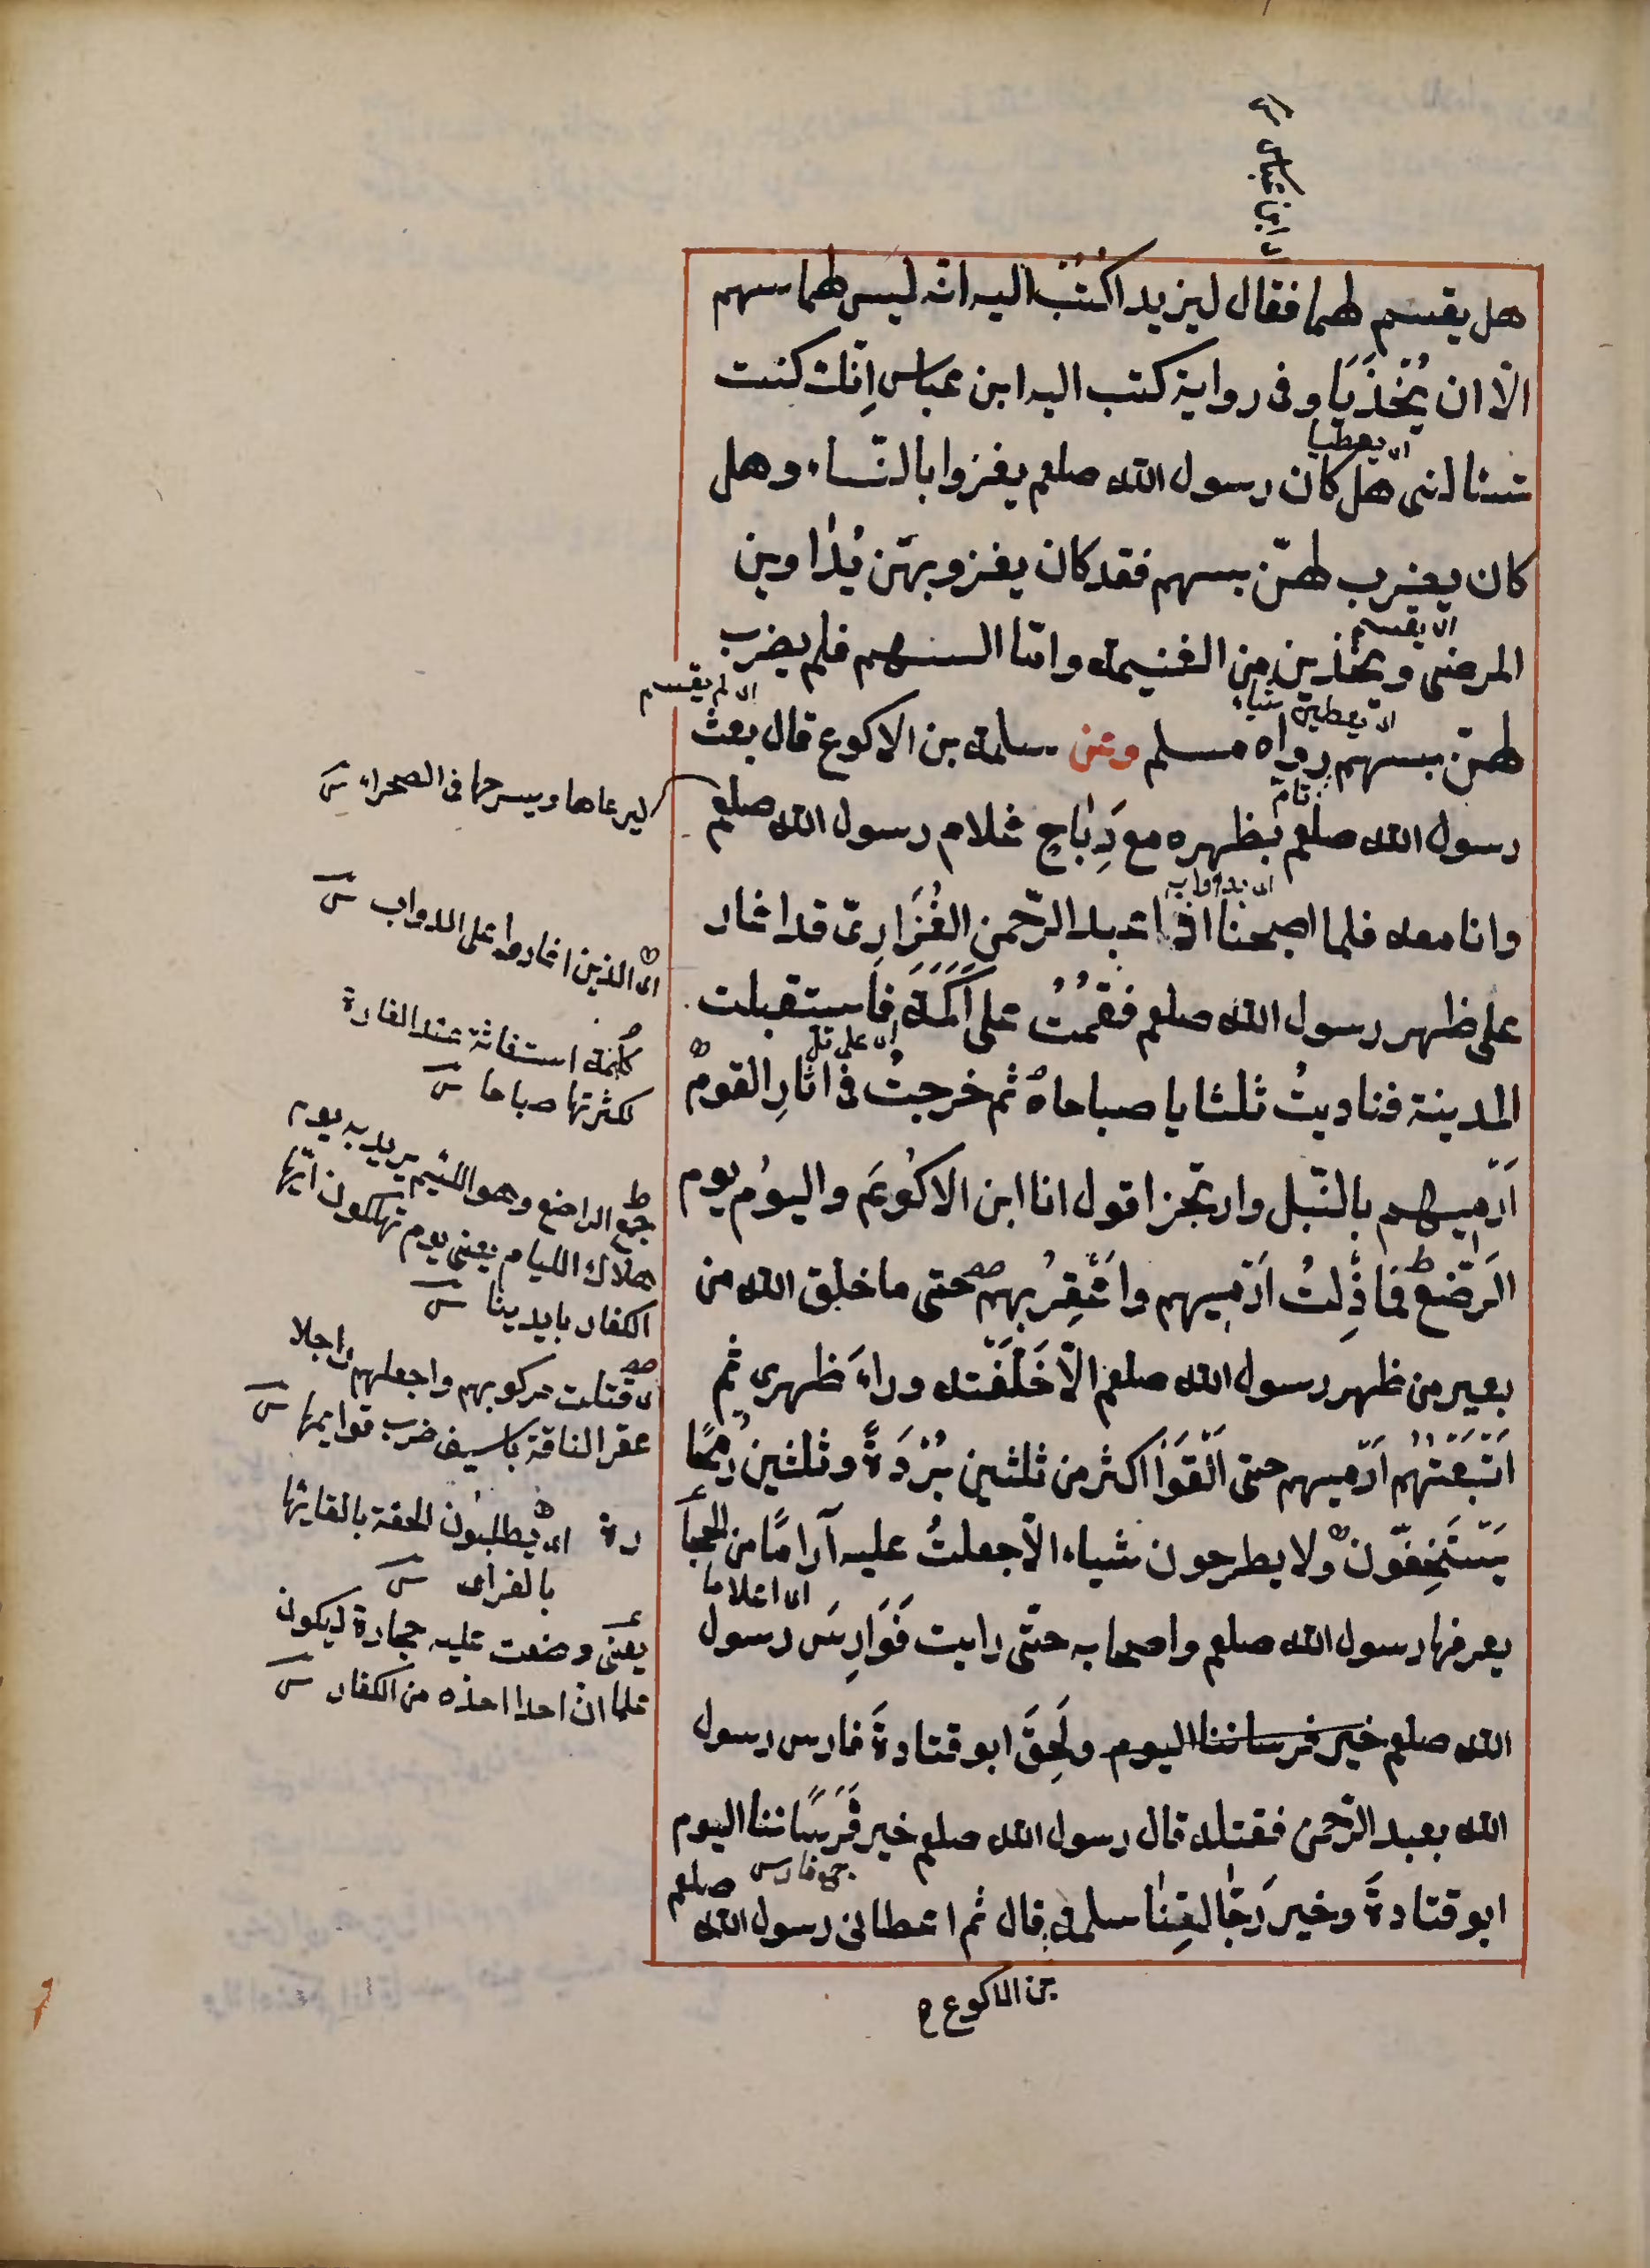 ابن عباس
هل يقسم لهما فقال ليزيد اكتُب اليه انه ليس لهما سهم
الّا ان يُحْذَيَا وفى رواية كتب اليه ابن عباس اِنّك كنت
اى يعطيا
تسئالنى هل كان رسول الله صلعم يغزوا بالنّساء وهل
كان يضرب لهنّ بسهم فقد كان يغزو بهّن يُدٰاوين
اى يقسم
المرضى ويحذين من الغنيمة وامّا السهم فلم يضرب
اى لم يقسم
اى يعطين شياء
لهنّ بسهم رواه مسلم وعن سلمة بن الاكوع قال بعث
رسول الله صلعم بظهره مع رَبٰاحٍ غلام رسول الله صلعم
اى بدوابه
وانا معه فلما اصبحنا اذا عبد الرّحمن الفَزَارِىّ قد اغار
على ظهر رسول الله صلعم فقمْتُ على اَكَمَة فاستقبلت
اى على تل
المدينة فناديتُ ثلثا يا صباحاهُ ثم خرجتُ فى اثارِ القوم
اَرْميهم بالنّبل وارتجز اقول انا ابن الاكْوَع واليوْم يوم
الرّضّع فما زِلتُ اَرْميهم واَعْقِرُ بهم حتى ما خلق الله من
بعير من ظهر رسول الله صلعم الّا خَلَّفْته وراءَ ظهرى ثم
اتَّبَعْتُهُم اَرْميهم حتى اَلْقَوْا اكثر من ثلثين بُرْدَةً وثلثين رُمْحًا
يَسْتَخِفّون ولا يطرحون شياء الّا جعلتُ عليه آرامًا من الحجا
اى اعلاما
رة
يعرفها رسول الله صلعم واصحابه حتّى رايت فَوَارِسَ رسول
الله صلعم خير فرساننا اليوم ولَحِقَ ابو قتادةَ فارس رسول
الله بعبد الرّحمن فقتله قال رسول الله صلعم خير فُرْسَاننا اليوم
جمع فارس
ابو قتادةَ وخير رَجّالتِنٰا سلمة قال ثم اعطانى رسول الله صلعم
بن الاكوع
ليرعاها ويسرحها فى الصحراء
اى الذين اغاروا على الدواب
كلمة استغاثة عند الغارة
لكثرتها صباحا
جمع الراضع وهو اللئيم يريد به يوم
هلاك الليام يعنى يوم تهلكون ايّها
الكفار بايدينا
اى قتلت مركوبهم واجعلهم راجلا
عقر الناقة بالسيف ضرب قوايمها
اى يطلبون الخفة بالقايها
بالفرار
يعنى وضعت عليه حجارة ليكون
علما ان احدا اخذه من الكفار